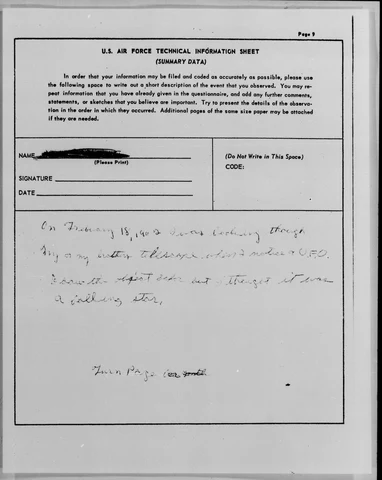 Page 9
U.S. AIR FORCE TECHNICAL INFORMATION SHEET
(SUMMARY DATA)
In order that your information may be filed and coded as accurately as possible, please use
the following space to write out a short description of the event that you observed. You may re-
peat information that you have already given in the questionnaire, and add any further comments,
statements, or sketches that you believe are important. Try to present the details of the observa-
tion in the order in which they occurred. Additional pages of the same size paper may be attached
if they are needed.
NAME
(Please Print)
SIGNATURE
DATE
(Do Not Write in This Space)
CODE:
On 18, I was looking though
my telescope when I a U.F.O.
but it was
a falling star,
Turn Page